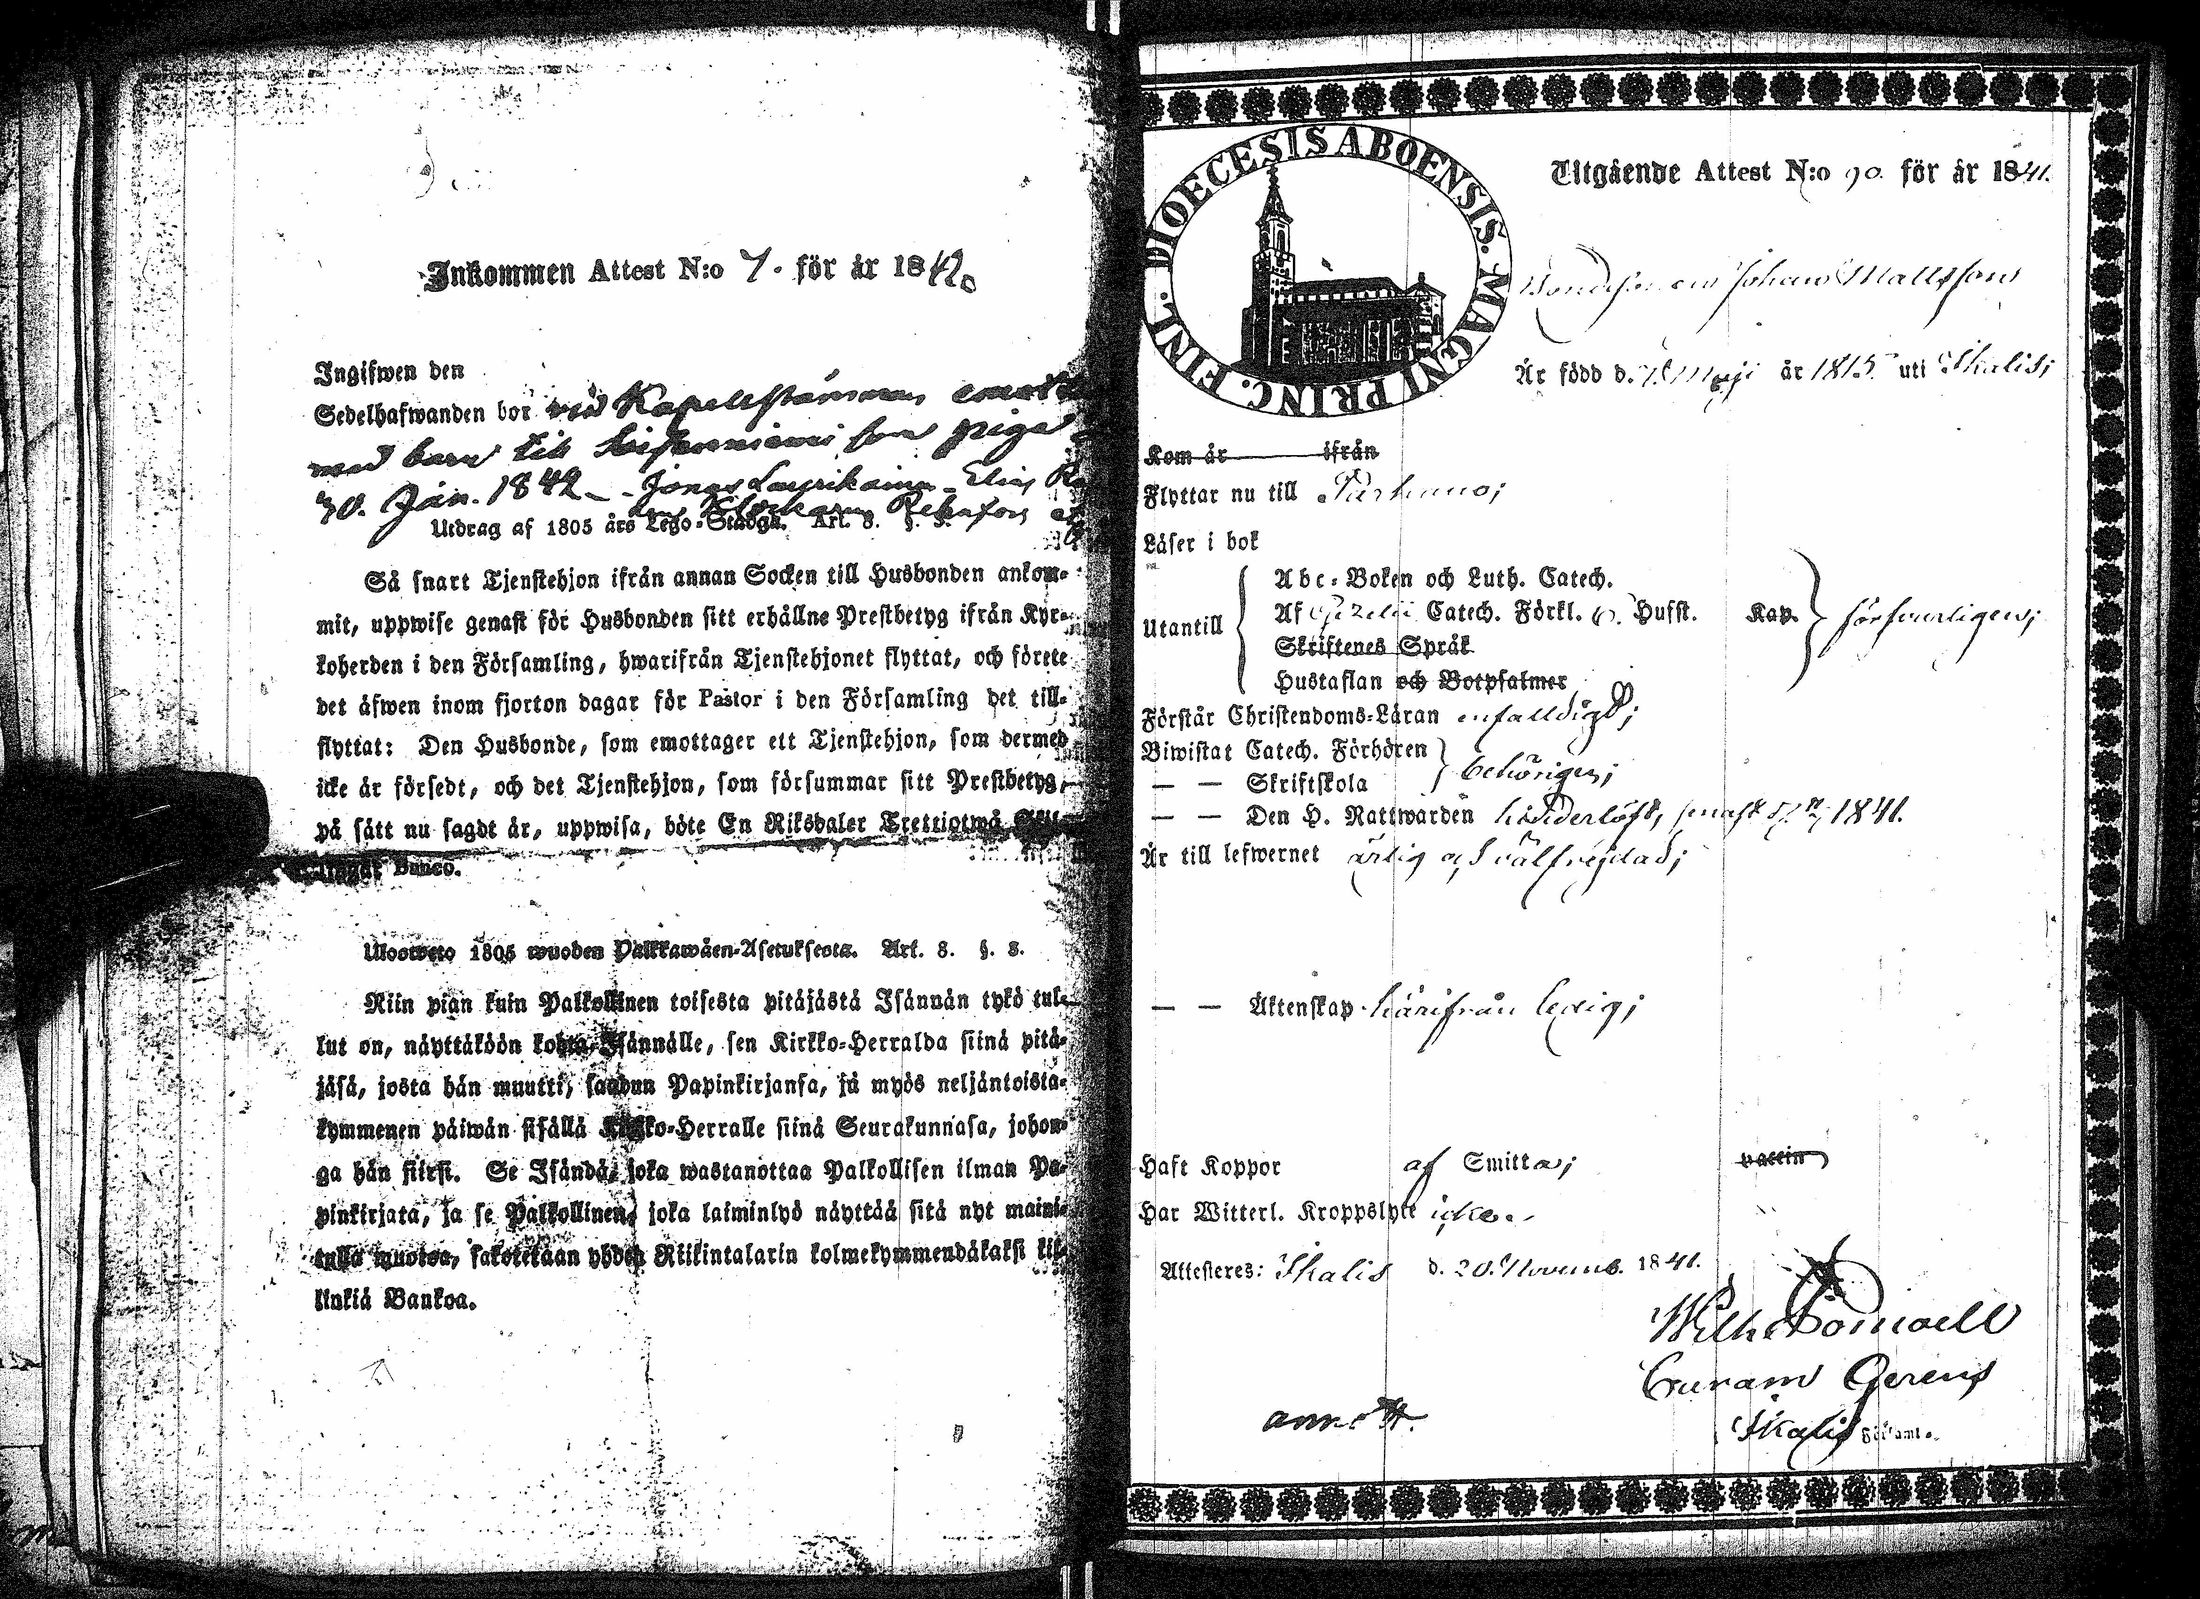 Inkommen Attest N:o 7. för år 1842.
Ingifwen den
Sedelhafwanden bor vid Kapellstämman
med barn till som piga
30. Jan. 1842 Jonas Laurikainen Elias
Utdrag af 1805 års Lego-Stadga. Art. 8. §. 3.
Så snart Tjenstehjon ifrån annan Socken till Husbonden ankom-
mit, uppwise genast för Husbonden sitt erhållne Prestbetyg ifrån Kyr-
koherden i den Församling, hwarifrån Tjenstehjonet flyttat, och förete
det äfwen inom fjorton dagar för Pastor i den Församling det till-
flyttat: Den Husbonde, som emottager ett Tjenstehjon, som dermed
icke är försedt, och det Tjenstehjon, som försummar sitt Prestbetyg,
på sätt nu sagdt är, uppwisa, böte En Riksdaler Trettiotwå Skil-
lingar Banco.
Ulosweto 1805 wuoden Palkkawäen-Asetuksesta. Art. 8. §. 3.
Niin pian kuin Palkollinen toisesta pitäjästä Isännän tykö tul-
lut on, näyttäköön kohta Isännälle, sen Kirkko-Herralda siinä pitä-
jäsä, josta hän muutti, saadun Papinkirjansa, ja myös neljäntoista-
kymmenen päiwän sisällä Kirkko-Herralle siinä Seurakunnasa, johon-
ga hän siirsi. Se Isändä, joka wastanottaa Palkollisen ilman Pa-
pinkirjata, ja se Palkollinen, joka laiminlyö näyttää sitä nyt maini-
tulla muotoa, sakotetaan yhden Riikintalarin kolmekymmendäkaksi kil-
linkiä Bankoa.
DIOECESIS ABOENSIS. MAGNI PRINC. FINL.
Utgående Attest N:o 90. för år 1841.
Bondesonen Johan Mattsson
Är född d. 7 Maji år 1815 uti Ikalis;
Kom år ifrån
Flyttar nu till Parkano;
Läser i bok
Utantill
Abc-Boken och Luth. Catech.
Af Gezelii Catech. Förkl. 6. Hufst. Kap.
försvarligen;
Skriftenes Språk
Hustaflan och Botpsalmer
Förstår Christendoms-Läran enfalldigt;
Biwistat Catech. Förhören
— — Skriftskola
behörigen;
— — Den H. Nattwarden senast 1841.
Är till lefwernet ärlig och välfrejdad;
— — Äktenskap härifrån ledig;
Haft Koppor af Smitta; vaccin
Har Witterl. Kroppslyte icke.
Attesteres: Ikalis d. 20. Novemb. 1841.
Curam Gerens
Ikalis Förs:aml.